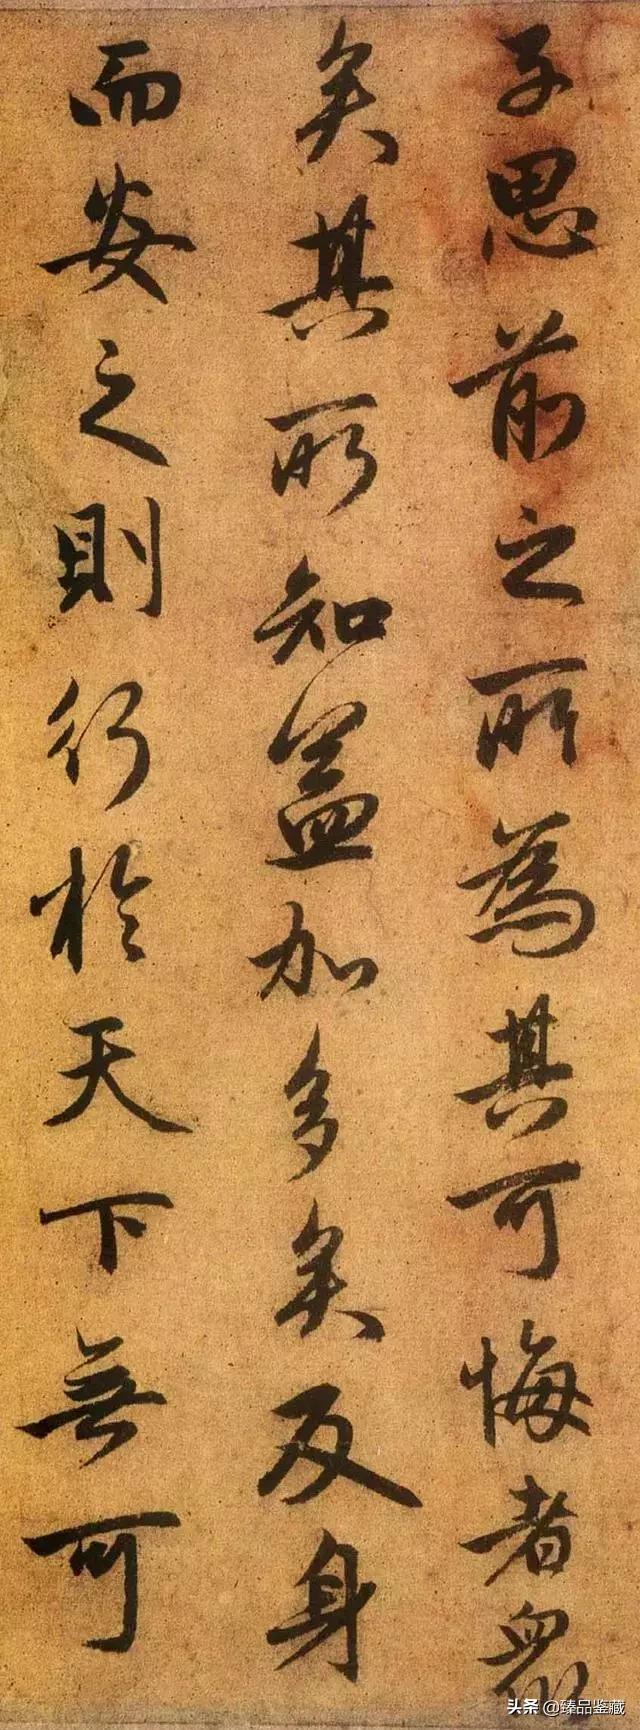 予思前之所為其可悔者眾
矣其所知益加多矣及身
而安之則行於天下無可
头条 @臻品鉴藏